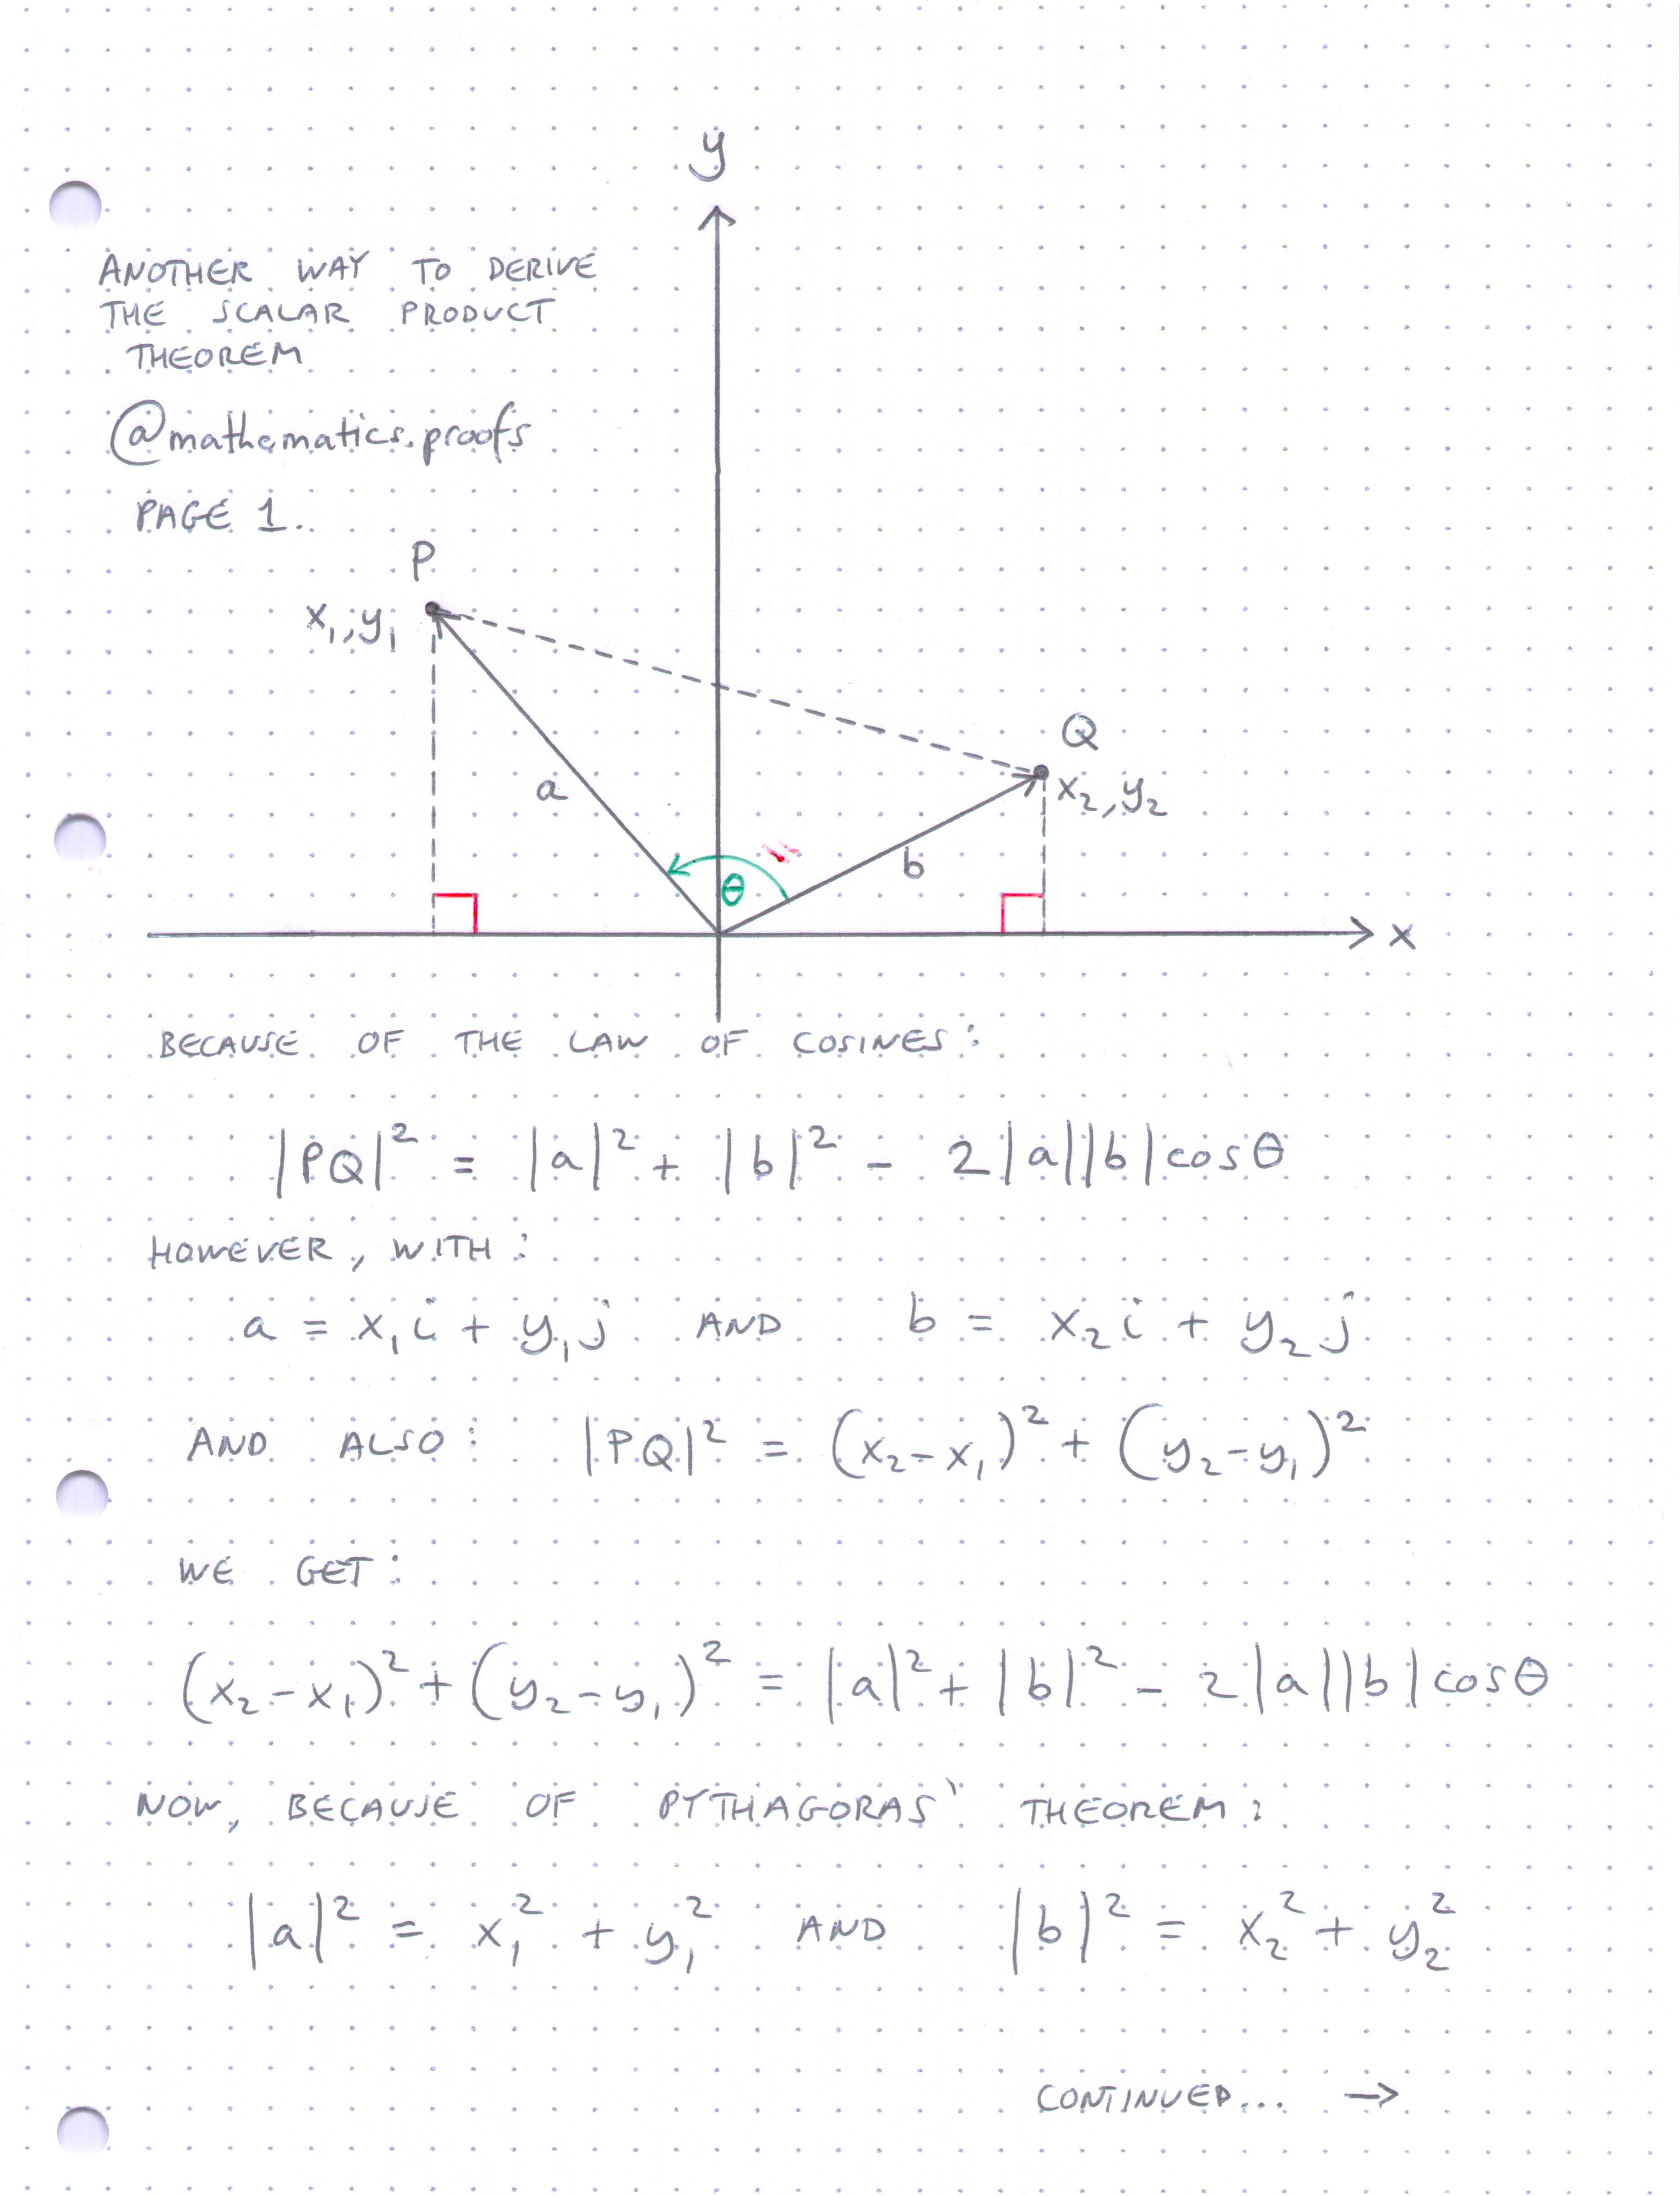 y
ANOTHER WAY TO DERIVE
THE SCALAR PRODUCT
THEOREM
@mathematics.proofs
PAGE 1.
P
x₁,y₁
Q
x₂,y₂
a
b
θ
x
BECAUSE OF THE LAW OF COSINES:
|PQ|² = |a|² + |b|² - 2|a||b|cosθ
HOWEVER, WITH:
a = x₁i + y₁j AND b = x₂i + y₂j
AND ALSO: |PQ|² = (x₂-x₁)² + (y₂-y₁)²
WE GET:
(x₂-x₁)² + (y₂-y₁)² = |a|² + |b|² - 2|a||b|cosθ
NOW, BECAUSE OF PYTHAGORAS' THEOREM:
|a|² = x₁² + y₁² AND |b|² = x₂² + y₂²
CONTINUED... →